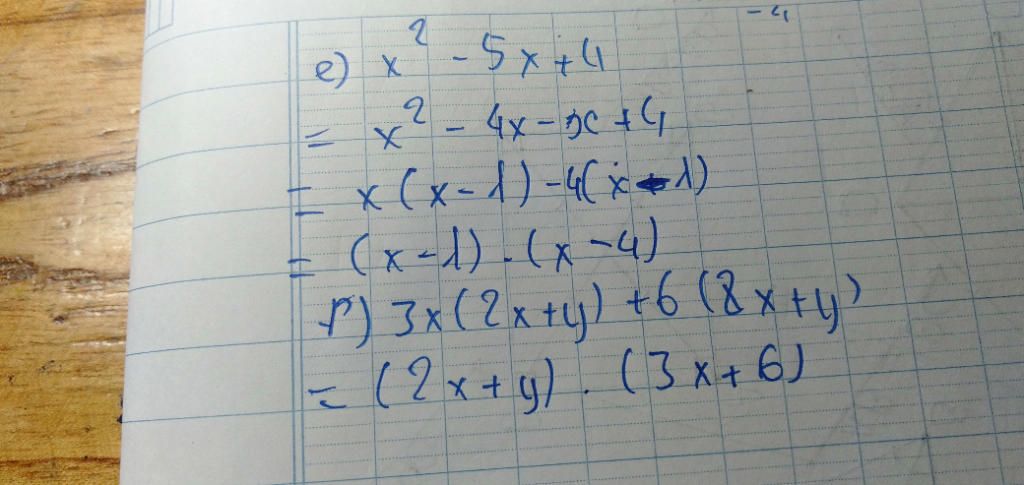 -4
e) x² - 5x + 4
= x² - 4x - x + 4
= x(x - 1) - 4(x - 1)
= (x - 1) . (x - 4)
f) 3x(2x + y) + 6(2x + y)
= (2x + y) . (3x + 6)